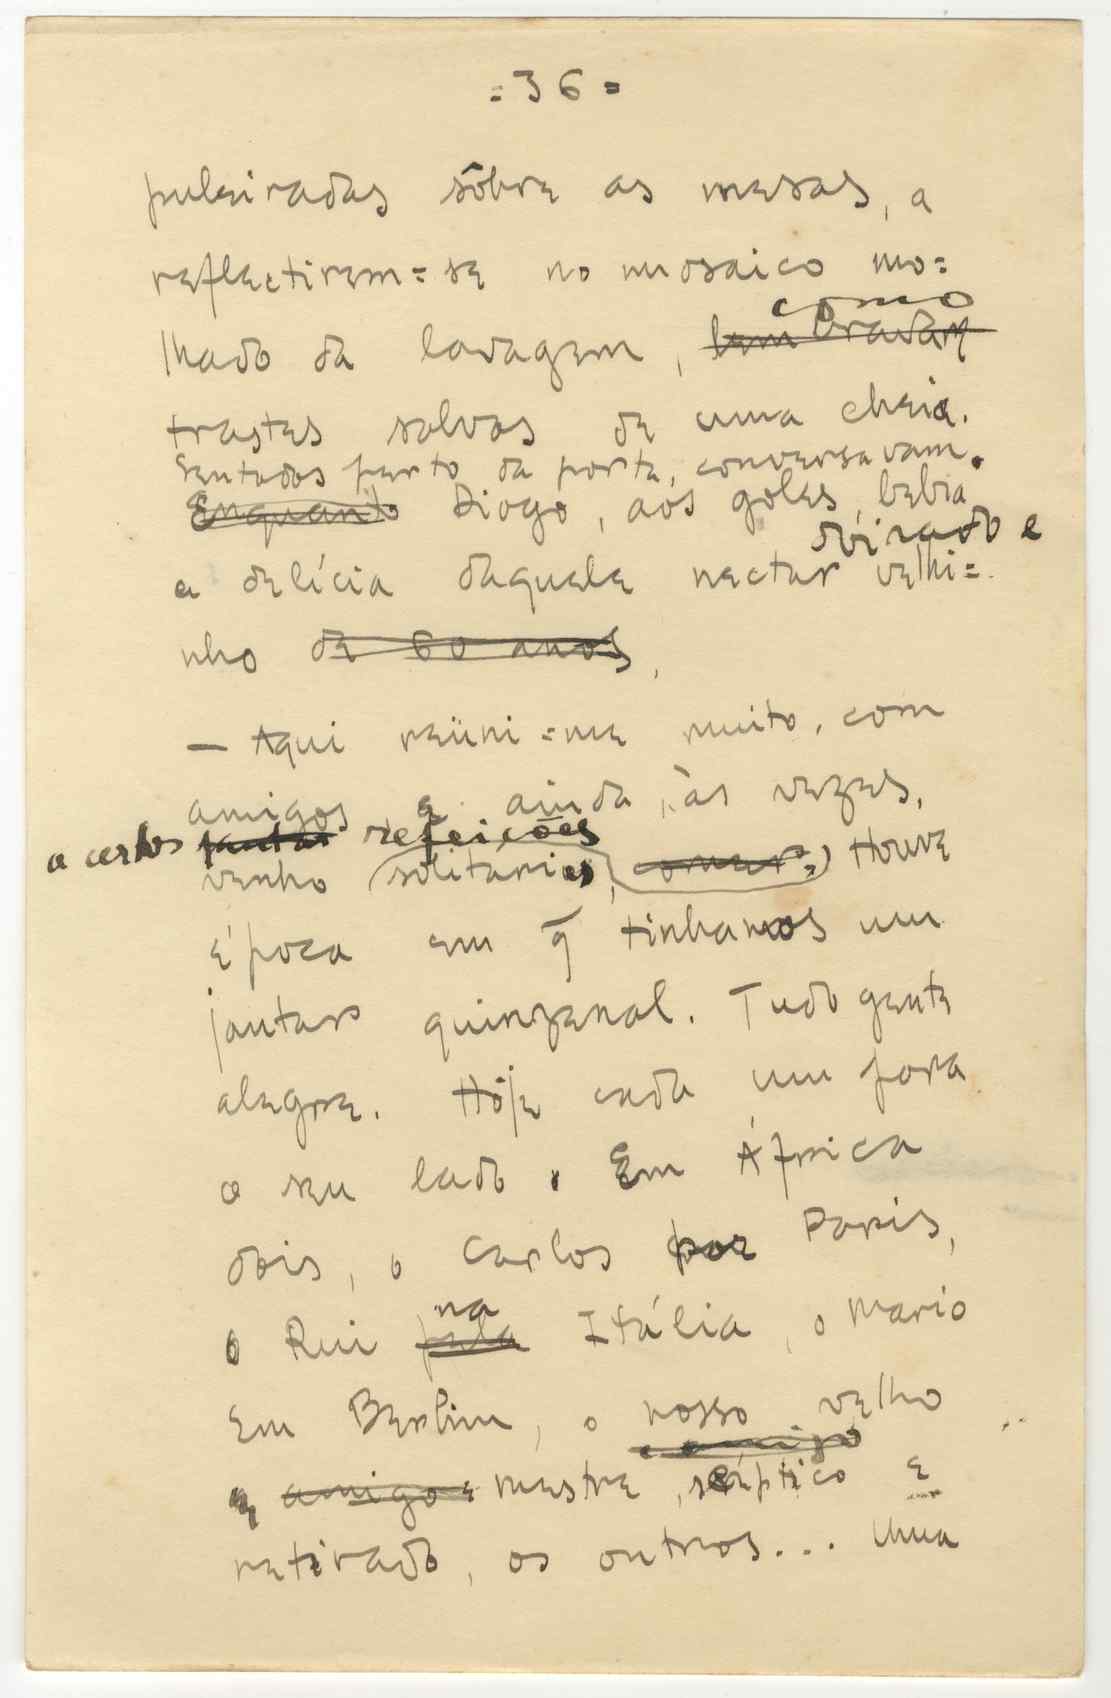 = 36 =
puleiradas sôbre as mesas, a
reflectirem=se no mosaico mo=
como
lhado da lavagem, lembradam
trastes salvos de uma cheia.
Sentados perto da porta, conversavam.
Enquanto Diogo, aos goles, bebia
doirado e
a delícia daquele nectar velhi=
nho de 60 anos,
— Aqui reüni=me muito, com
amigos e ainda, às vezes,
a certos jantar refeições
venho solitarias, comer=) Houve
época em q̃ tinhamos um
jantar quinzenal. Tudo gente
alegre. Hôje cada um pora
o seu lado. Em África
dois, o Carlos por Paris,
na
o Rui pela Itália, o Mario
em Berlim, o nosso velho
e amigo
e amigo e mestre, scéptico e
retirado, os outros... Uma